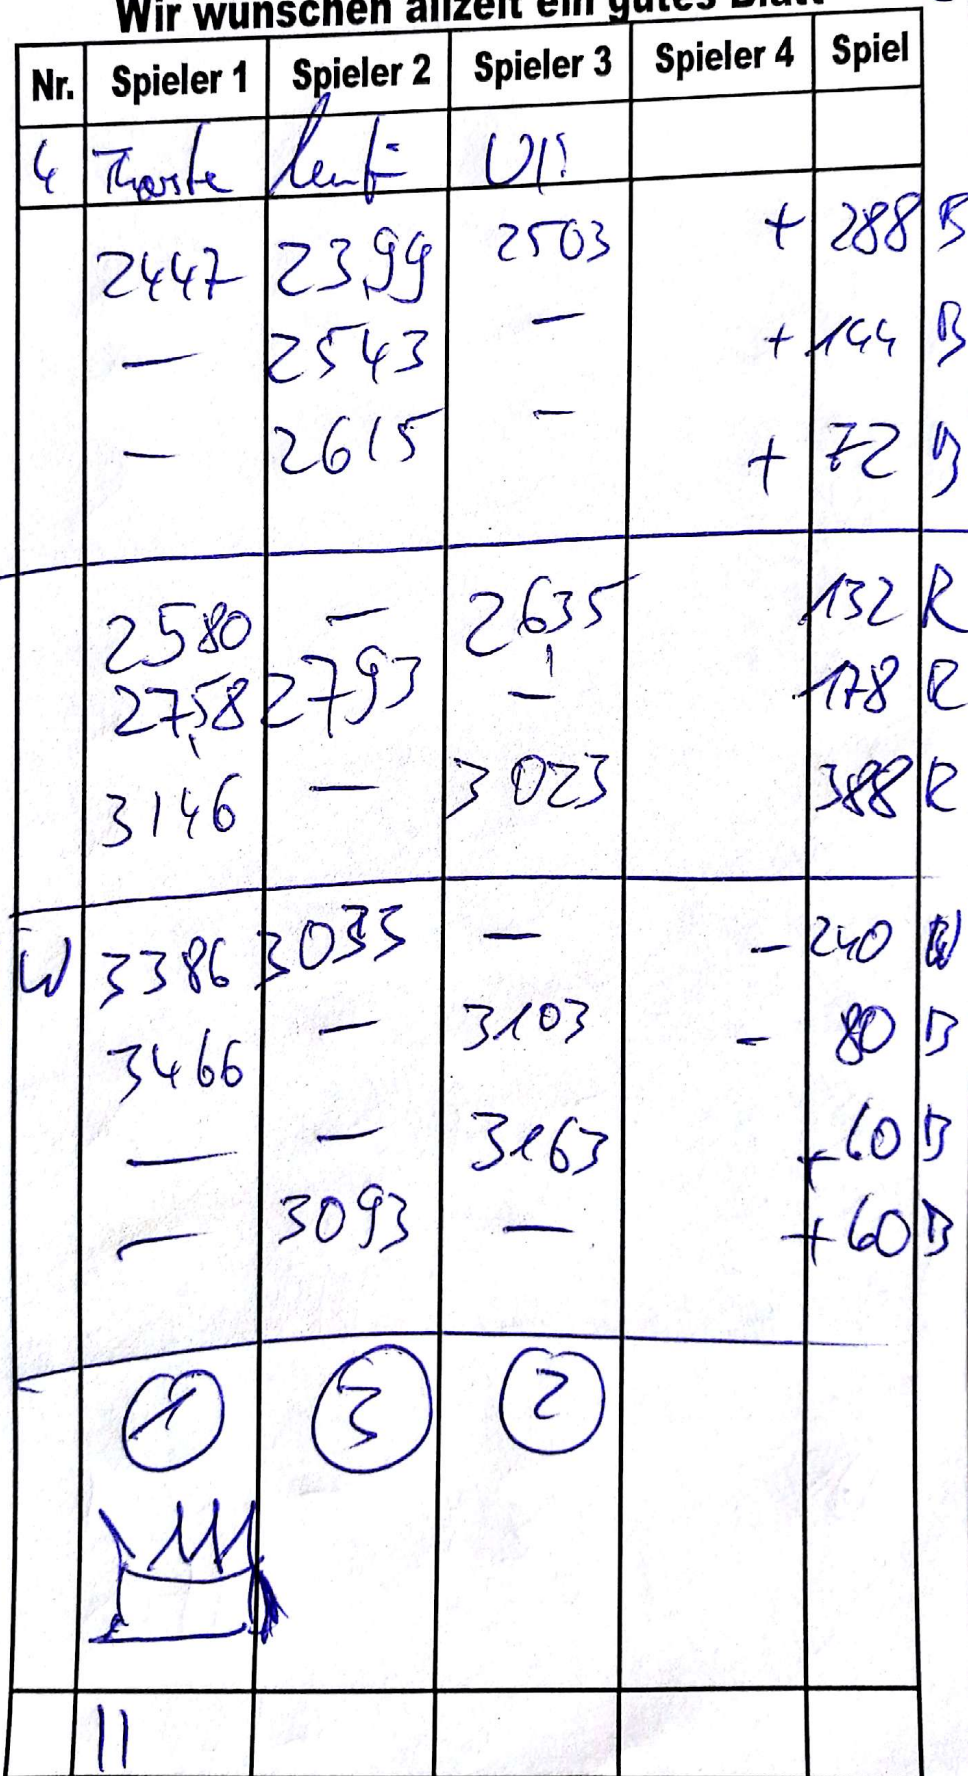 Wir wünschen allzeit ein gutes Blatt
Nr. Spieler 1 Spieler 2 Spieler 3 Spieler 4 Spiel
4 Uli
2447 2399 2503 + 288 B
— 2543 — + 144 B
— 2615 — + 72 B
2580 — 2635 132 R
2758 2793 — 178 R
3146 — 3023 388 R
W 3386 3033 — - 240
3466 — 3103 - 80 B
— — 3163 + 60 B
— 3093 — + 60 B
1 3 2
||